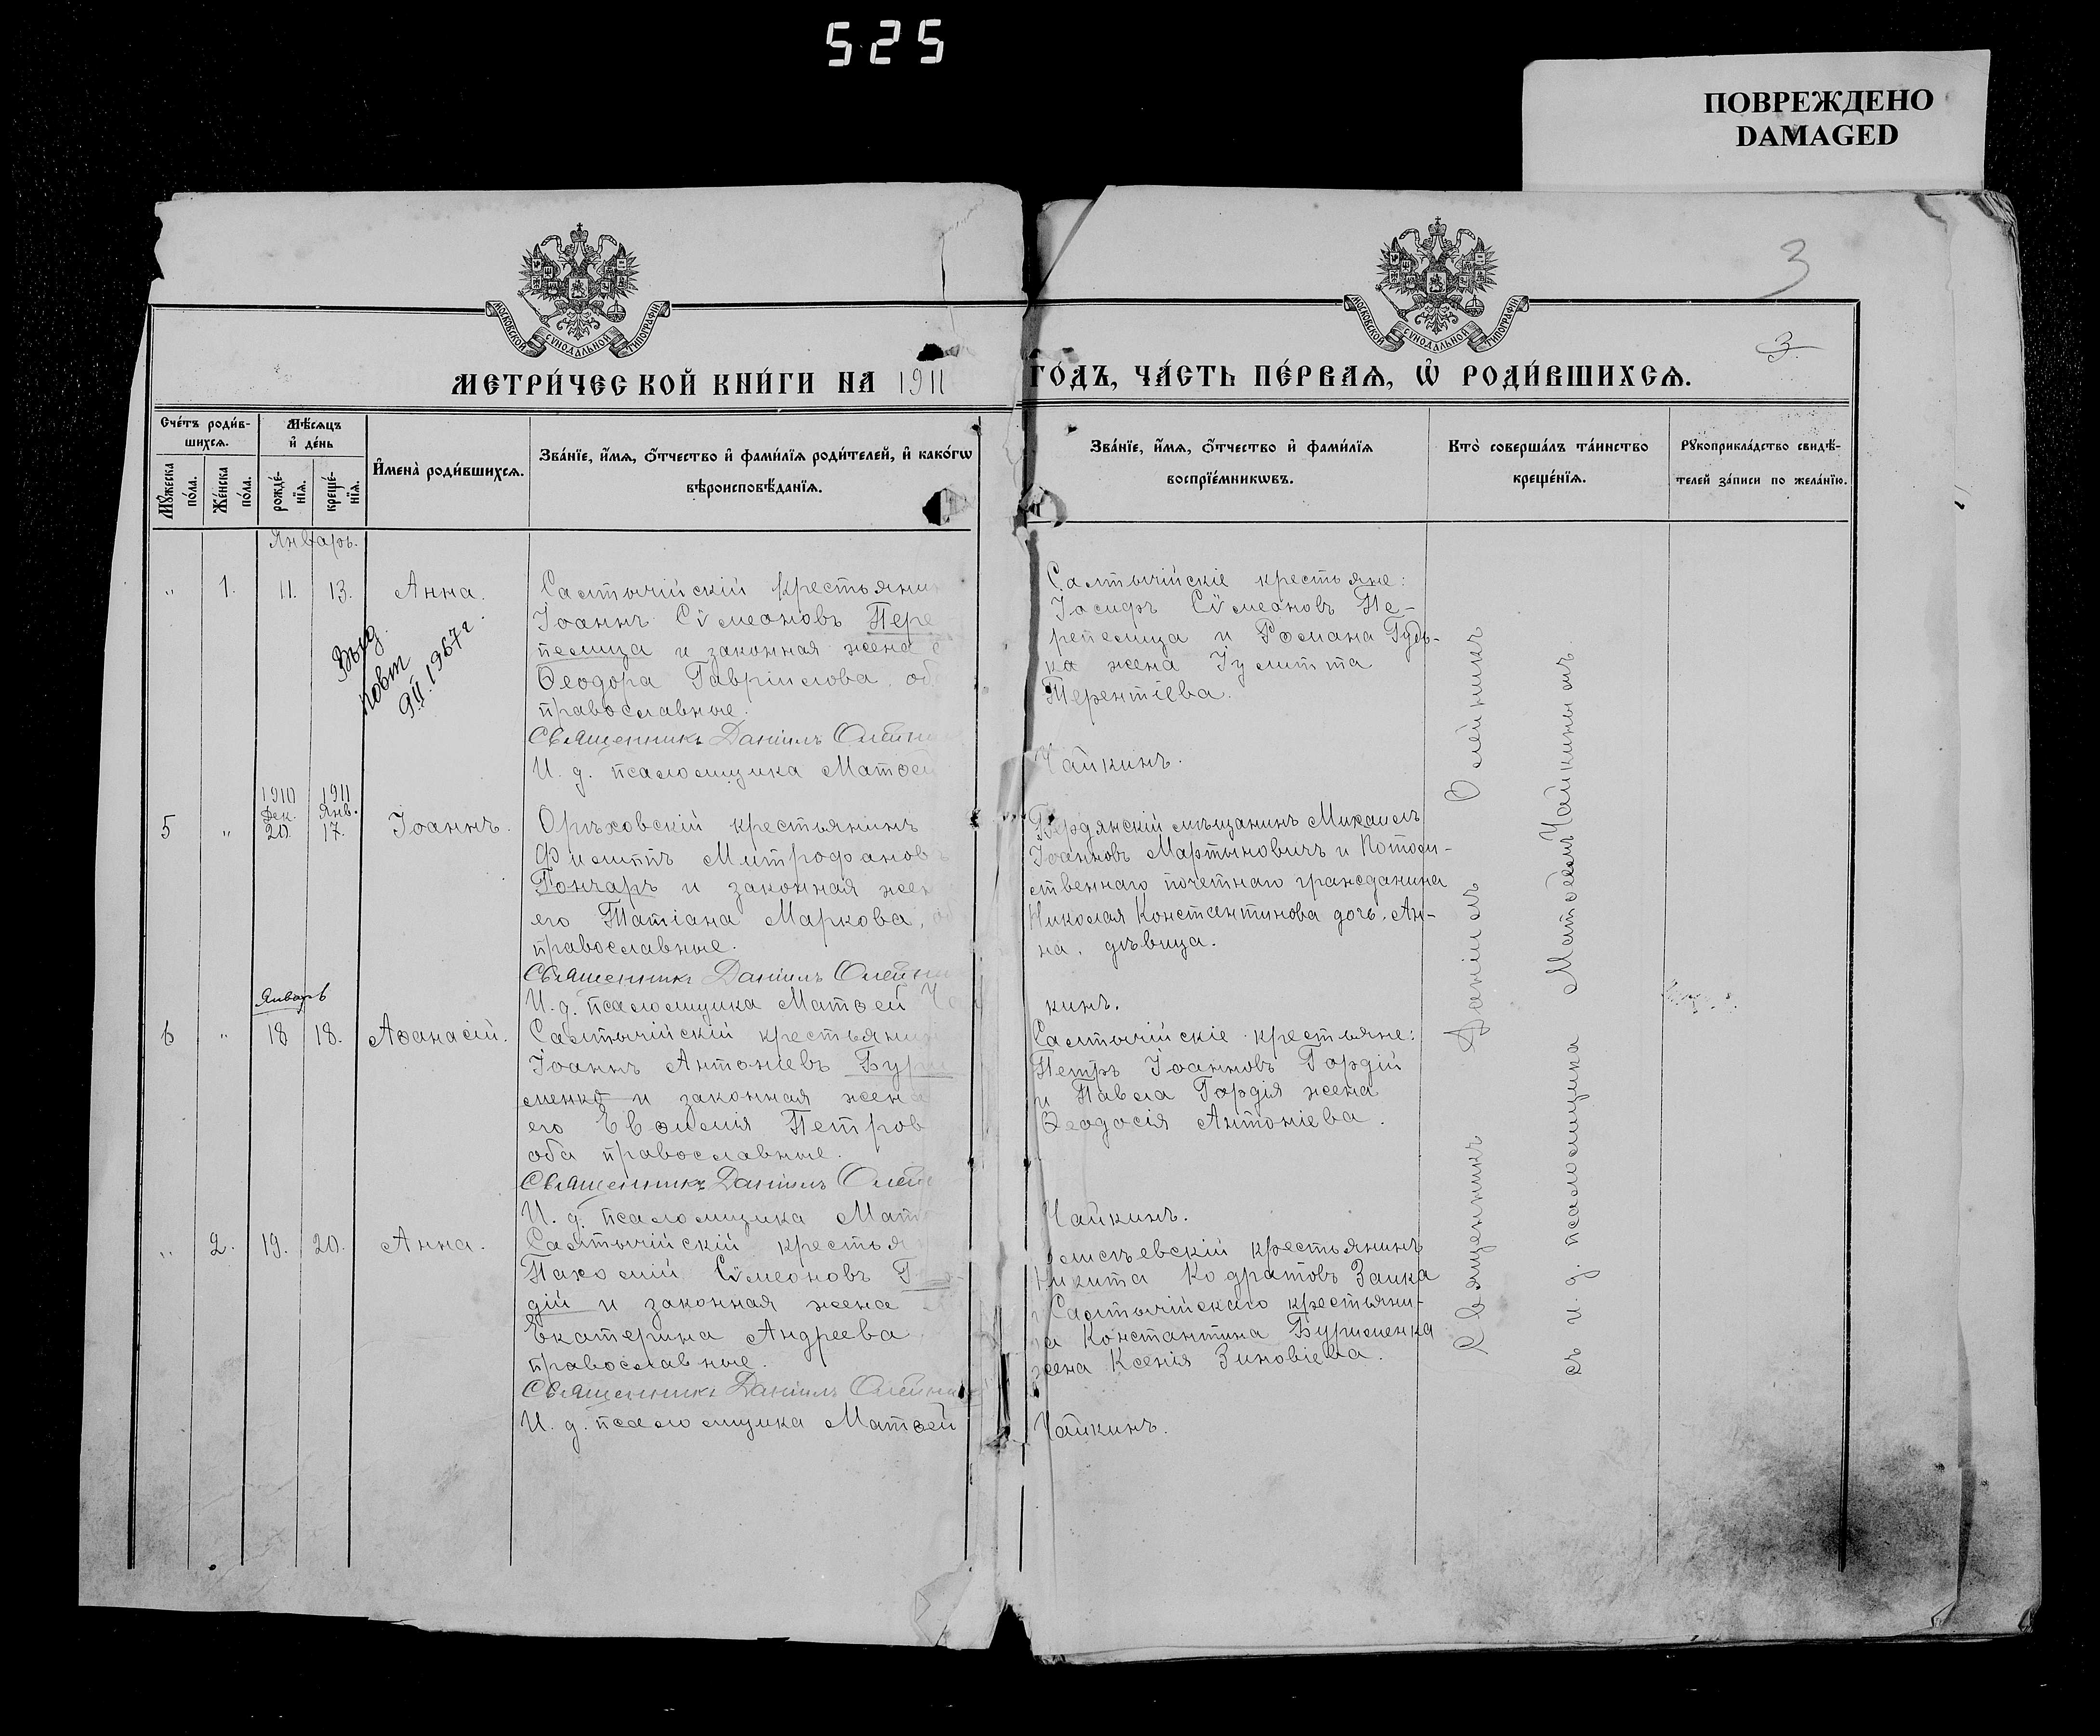 525
ПОВРЕЖДЕНО
DAMAGED
3
3
МОСКОВСКОЙ СѴНОДАЛЬНОЙ ТИПОГРАФІИ
МОСКОВСКОЙ СѴНОДАЛЬНОЙ ТИПОГРАФІИ
МЕТРИ́ЧЕСКОЙ КНИ́ГИ НА 1911 ГО́ДЪ, ЧА́СТЬ ПЕ́РВАѦ, Ѡ҆ РОДИ́ВШИХСѦ.
Сче́тъ роди́в-
шихсѧ.
Мꙋ́жеска
по́ла.
Же́нска
по́ла.
Мѣ́сѧцъ
и҆ де́нь
рожде́-
нїѧ.
креще́-
нїѧ.
И҆мена̀ роди́вшихсѧ.
Зва́нїе, и҆́мѧ, ѻ҆́тчество и҆ фами́лїѧ роди́телей, и҆ како́гѡ
вѣроисповѣ́данїѧ.
Зва́нїе, и҆́мѧ, ѻ҆́тчество и҆ фами́лїѧ
воспрїе́мникѡвъ.
Кто̀ соверша́лъ та́инство
креще́нїѧ.
Рꙋкоприкла́дство свидѣ́-
телей за́писи по жела́нїю.
Январь.
" 1. 11. 13. Анна.
Салтычійскій крестьяни
Іоаннъ Сѵмеоновъ Пере
пелица и законная жена
Ѳеодора Гавріилова, об
православные.
Священникъ Даніилъ Олейни
И. д. псаломщика Матѳей
Салтычійскіе крестьяне:
Іосифъ Сѵмеоновъ Пе-
репелица и Романа Гудь-
ка жена Іулитта
Терентіева.
Чайкинъ.
Выд.
повт
9.II.1967 г.
1910 1911
Дек. Янв.
5 " 20. 17. Іоаннъ.
Орѣховскій крестьянинъ
Филиппъ Митрофанов
Гончаръ и законная жен
его Татіана Маркова,
православные.
Священникъ Даніилъ Олейни
И. д. псаломщика Матѳей Ча
Бердянскій мѣщанинъ Михаилъ
Іоанновъ Мартыновичъ и Потом-
ственнаго почетнаго гражданина
Николая Константинова дочь, Ан-
на, дѣвица.
кинъ.
Январь
6 " 18 18. Аѳанасій.
Салтычійскій крестьянин
Іоаннъ Антоніевъ Бурш
менко и законная жена
его Евѳимія Петров
оба православные.
Священникъ Даніилъ Олей
И. д. псаломщика Мат
Салтычійскіе крестьяне:
Петръ Іоанновъ Гордій
и Павла Гордія жена
Ѳеодосія Антоніева.
Чайкинъ.
" 2. 19. 20. Анна.
Салтычійскій крестья
Пахомій Сѵмеоновъ Г
дій и законная жена
Екатерина Андреева
православные.
Священникъ Даніилъ Олейни
И. д. псаломщика Матѳей
крестьянинъ
Никита Кодратовъ Заика
Салтычійскаго крестьяни-
на Константина Бурименка
жена Ксенія Зиновіева.
Чайкинъ.
Священникъ Даніилъ Олейникъ
съ и. д. псаломщика Матѳеемъ Чайкинымъ